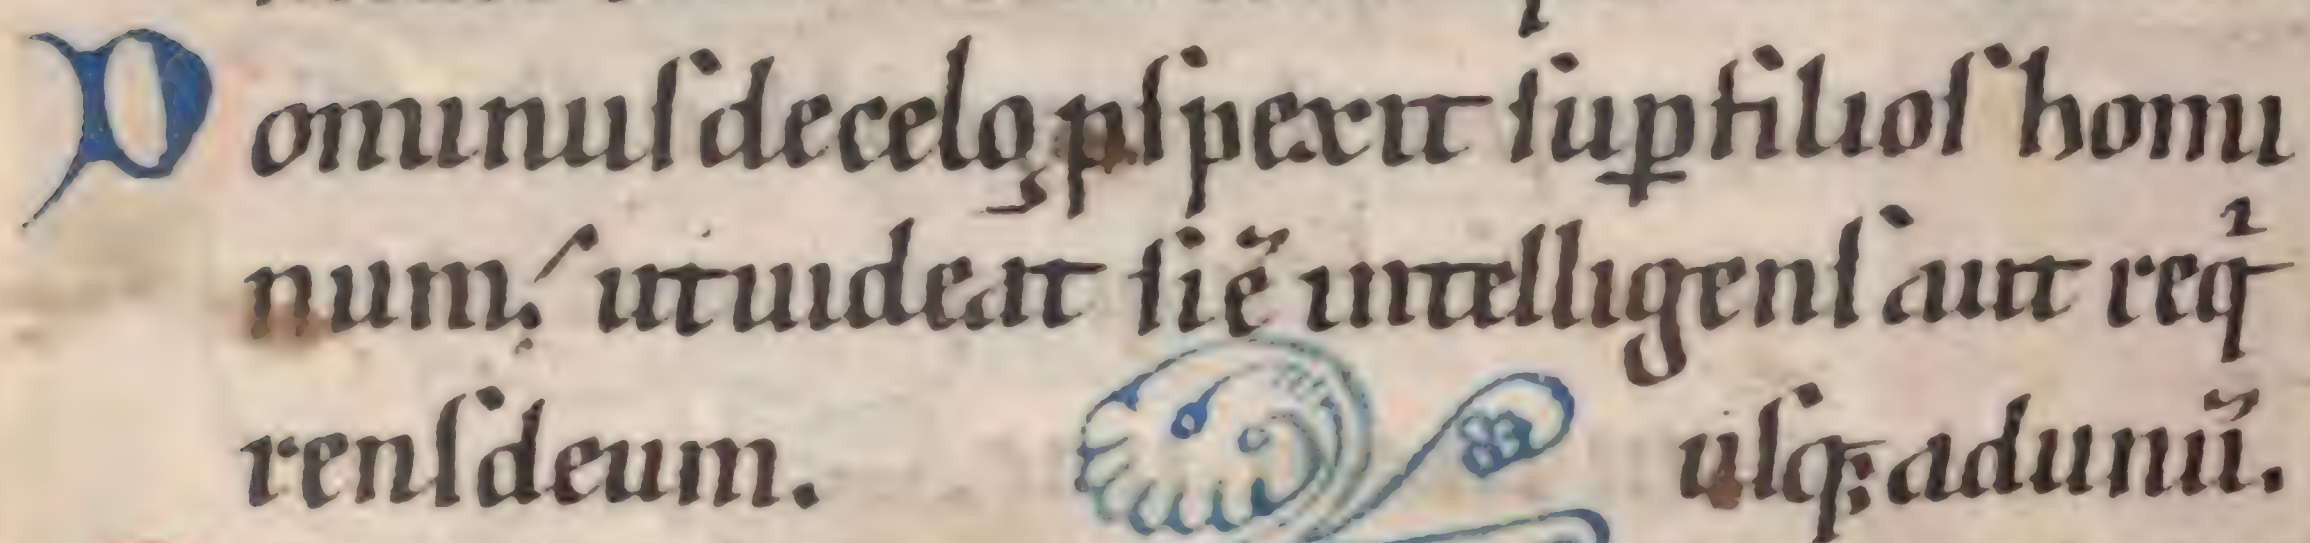 Dominuſ de celo ꝓſpexit ſuꝑ filioſ homi
num; ut uideat ſi ē intelligenſ aut reqͥ
renſ deum. uſq; ad unū.